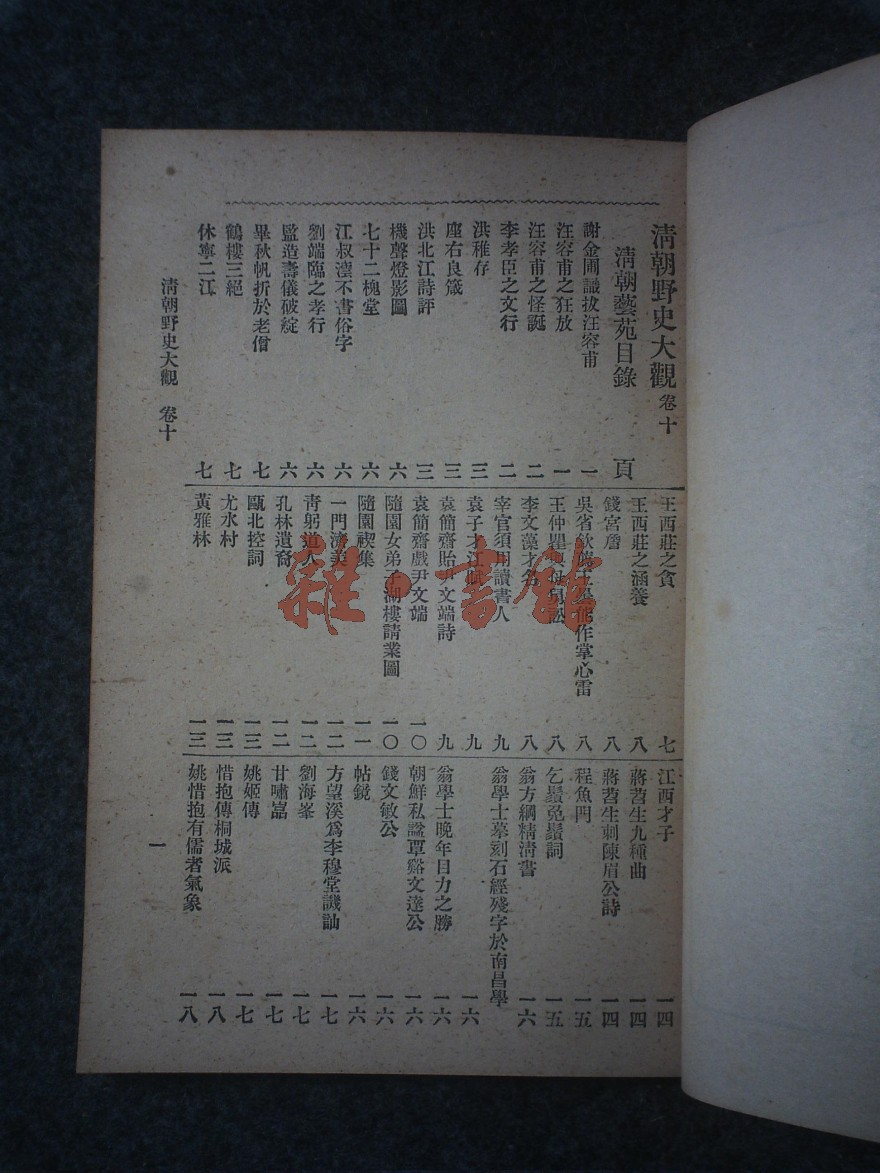 清朝野史大觀 卷十
清朝藝苑目錄 頁
謝金圃識拔汪容甫 一
汪容甫之狂放 一
汪容甫之怪誕 二
李孝臣之文行 二
洪稚存 三
座右良箴 三
洪北江詩評 三
機聲燈影圖 六
七十二槐堂 六
江叔澐不書俗字 六
劉端臨之孝行 六
監造壽儀破綻 六
畢秋帆折於老僧 七
鶴樓三絕 七
休寧二江 七
王西莊之貪 七
王西莊之涵養 八
錢宮詹 八
吳省欽 作掌心雷 八
王仲瞿 八
李文藻才名 八
宰官須用讀書人 九
袁子才 賦 九
袁簡齋貽尹文端詩 九
袁簡齋戲尹文端 一〇
隨園女弟子湖樓請業圖 一〇
隨園禊集 一一
一門濟美 一二
靑躬道人 一二
孔林遺裔 一二
甌北控詞 一三
尤水村 一三
黃雅林 一三
江西才子 一四
蔣苕生九種曲 一四
蔣苕生刺陳眉公詩 一四
程魚門 一五
乞鬚免鬚詞 一五
翁方綱精淸書 一六
翁學士摹刻石經殘字於南昌學 一六
翁學士晚年目力之勝 一六
朝鮮私諡覃谿文達公 一六
錢文敏公 一六
帖鏡 一六
方望溪爲李穆堂譏訕 一七
劉海峯 一七
甘嘯嵓 一七
姚姬傳 一七
惜抱傳桐城派 一八
姚惜抱有儒者氣象 一八
清朝野史大觀 卷十
一